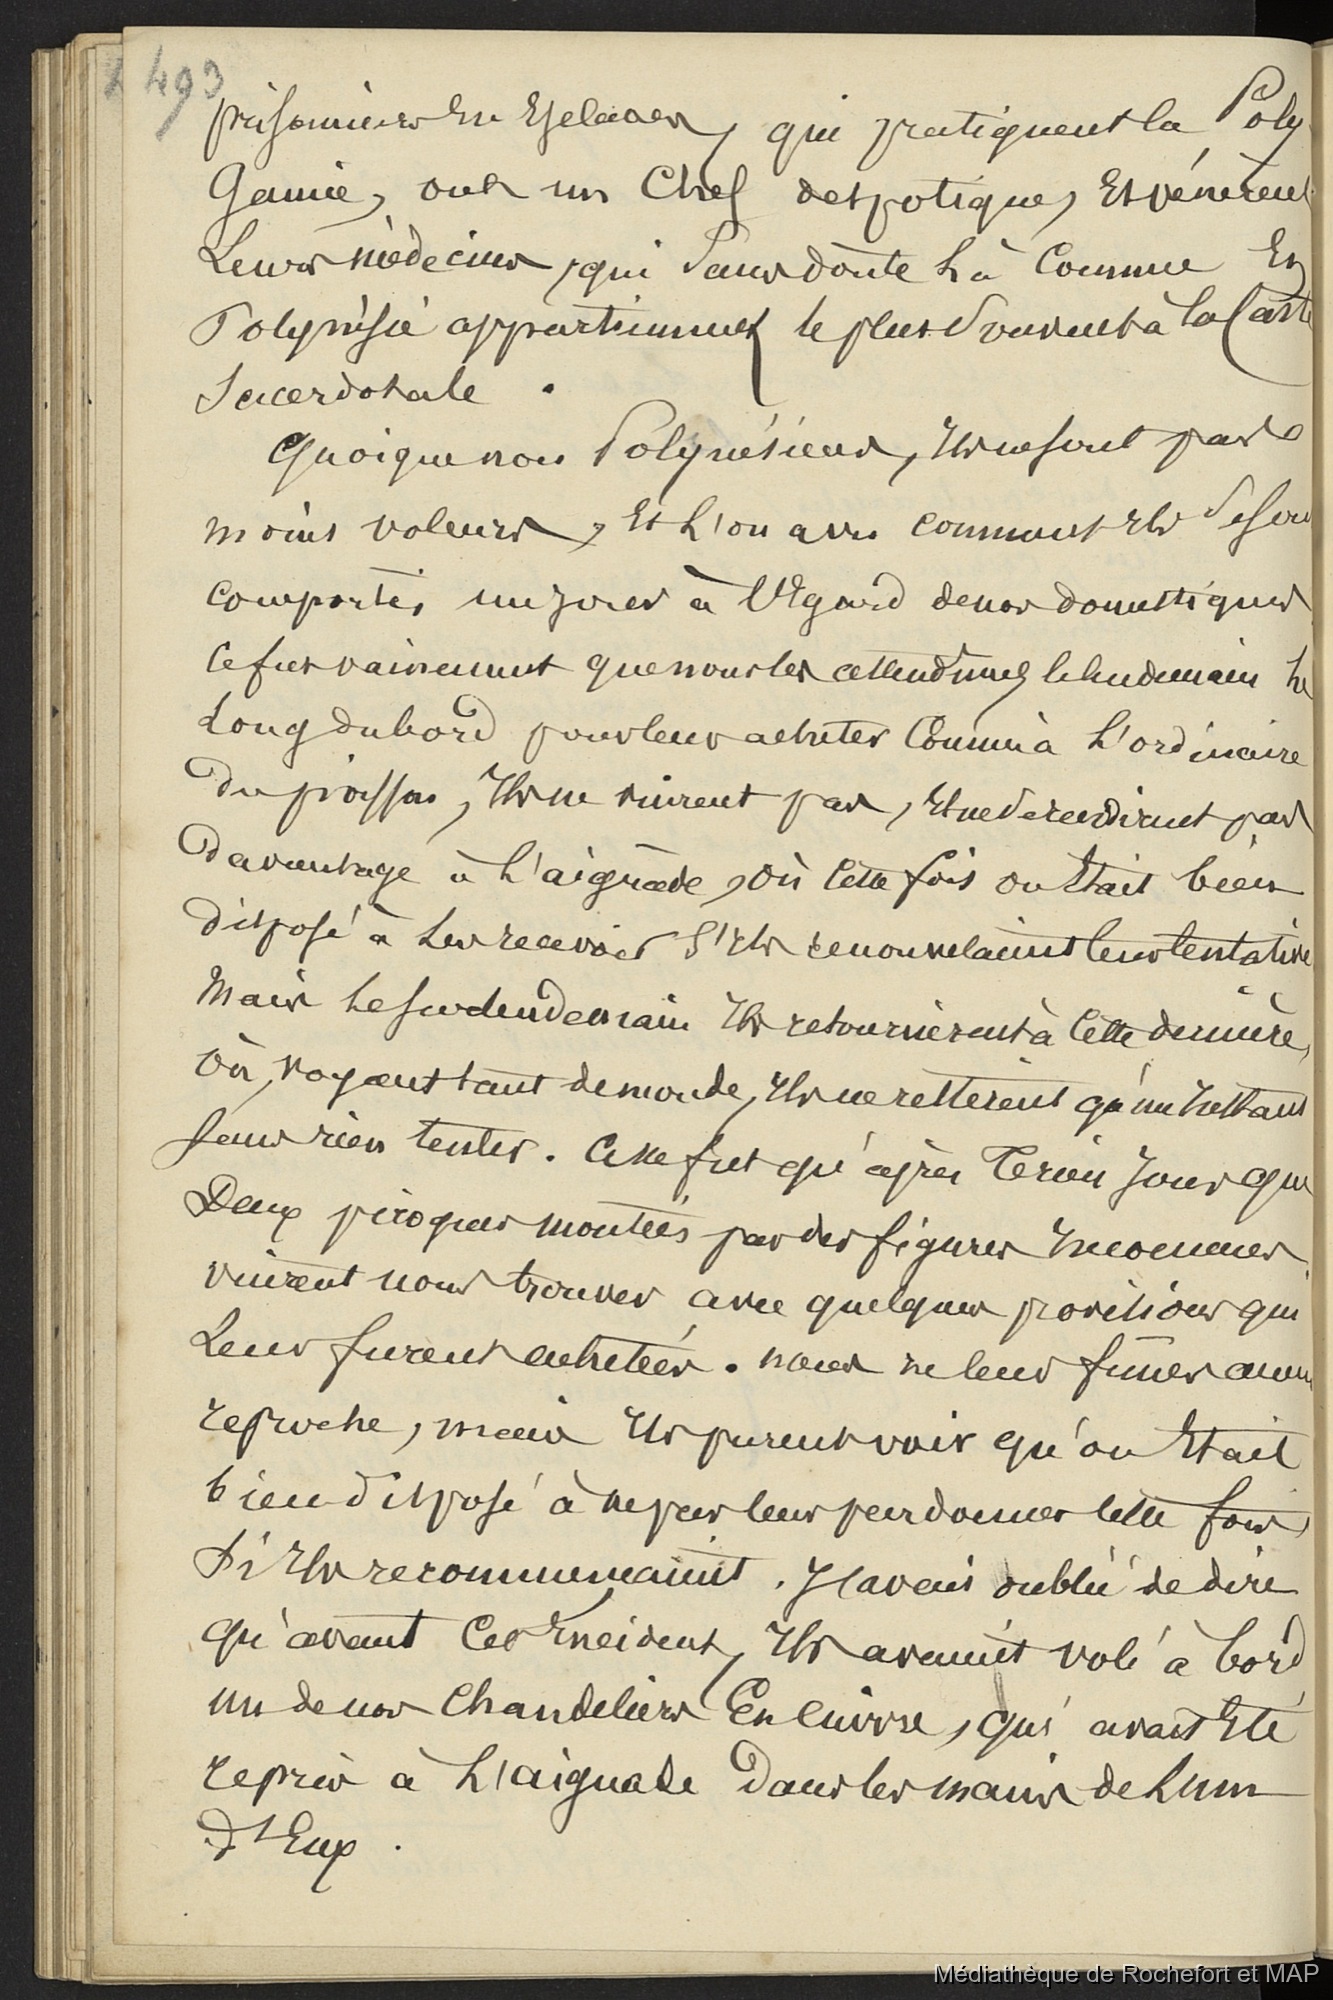 493
prisonniers En Esclaves, qui pratiquent la Poly
Gamie, ont un Chef despotique, Et vénèrent
Leurs médecins, qui Sans doute Là Comme En
Polynésie appartiennent le plus Souvent à la Caste
Sacerdotale.
Quoique non Polynésiens, Ils ne sont pas
moins voleurs, Et L'on a vu comment Ils Se sont
comportés un jour à L'Egard de nos domestiques
Ce fut vainement que nous les attendîmes le lendemain Le
Long du bord pour leur acheter Comme à L'ordinaire
Du poisson, Ils ne vinrent pas, Et ne Se rendirent pas
Davantage à L'aiguade, Où Cette fois on Etait bien
disposé à Les recevoir S'Ils renouvelaient leur tentative
Mais Le surlendemain Ils retournèrent à Cette dernière,
Où, voyant tant de monde, Ils ne restèrent qu'un Instant
Sans rien tenter. Ce ne fut qu'après Trois Jours que
Deux pirogues montées par des figures Inconnues
vinrent nous trouver avec quelques provisions qui
Leur furent achetées. Nous ne leur fîmes aucun
reproche, mais Ils purent voir qu'on Etait
bien disposé à ne pas leur pardonner Cette fois
Si Ils recommençaient. J'avais oublié de dire
qu'avant Cet Incident, Ils avaient volé à bord
un de nos Chandeliers En Cuivre, qui avait Eté
repris à L'aiguade Dans les mains de L'un
D'Eux.
Médiathèque de Rochefort et MAP